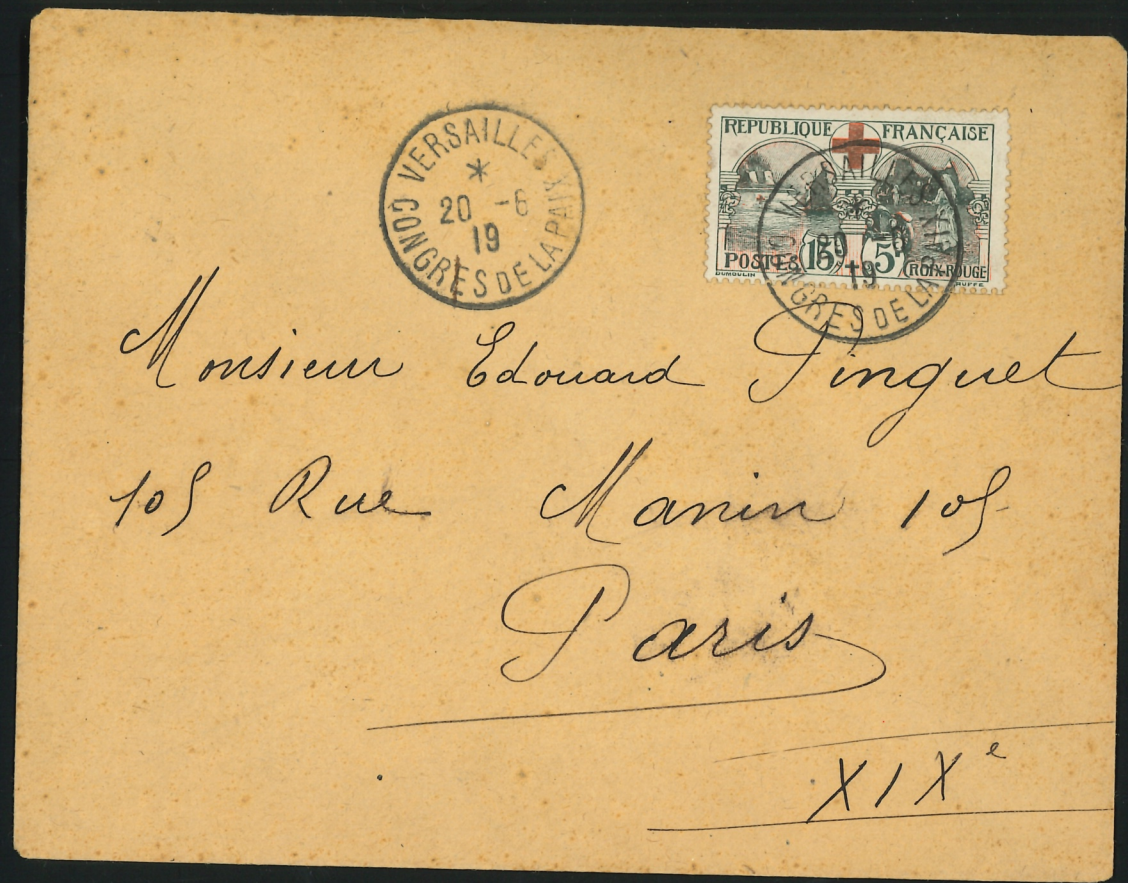 VERSAILLES
*
20 -6
19
CONGRES DE LA PAIX
REPUBLIQUE FRANÇAISE
POSTES 15c + 5c CROIX-ROUGE
DUMOULIN RUFFE
VERSAILLES
*
20 -6
19
CONGRES DE LA PAIX
Monsieur Edouard Pinguet
105 Rue Manin 105
Paris
XIXe